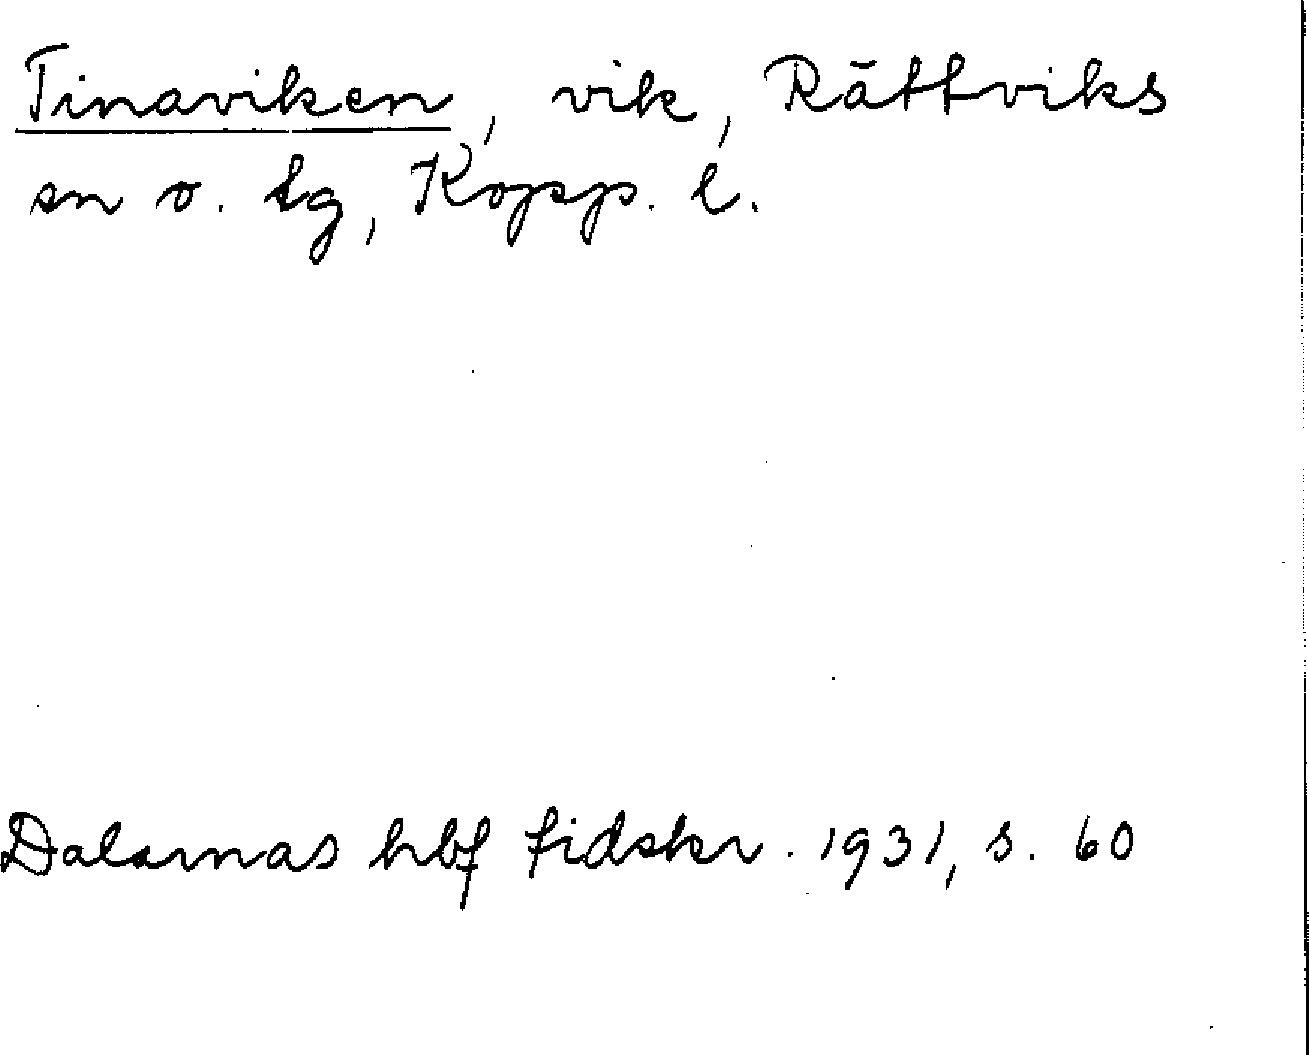 Tinaviken, vik, Rättviks
sn o. tg, Kopp. l.
Dalarnas hbf tidskr. 1931, s. 60